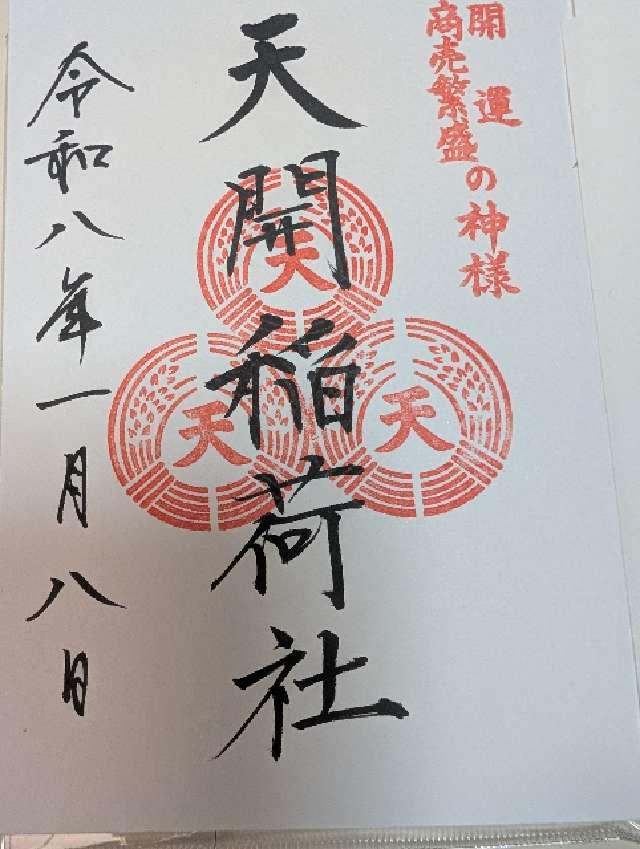 開運の神様
商売繁盛
天開稲荷社
天
天
天
令和八年一月八日